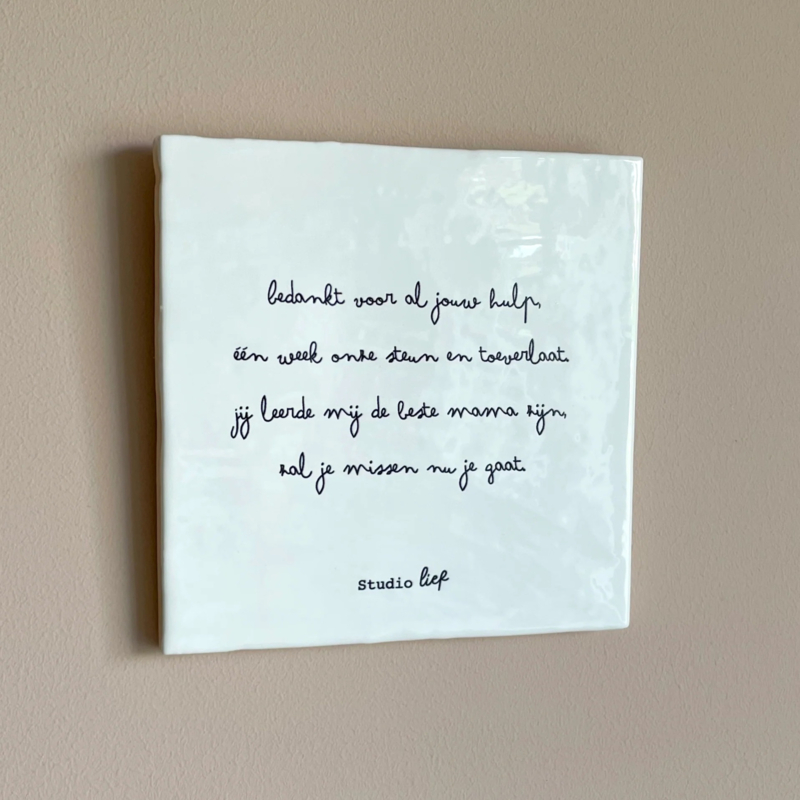 bedankt voor al jouw hulp,
één week onze steun en toeverlaat.
jij leerde mij de beste mama zijn,
zal je missen nu je gaat.
Studio lief